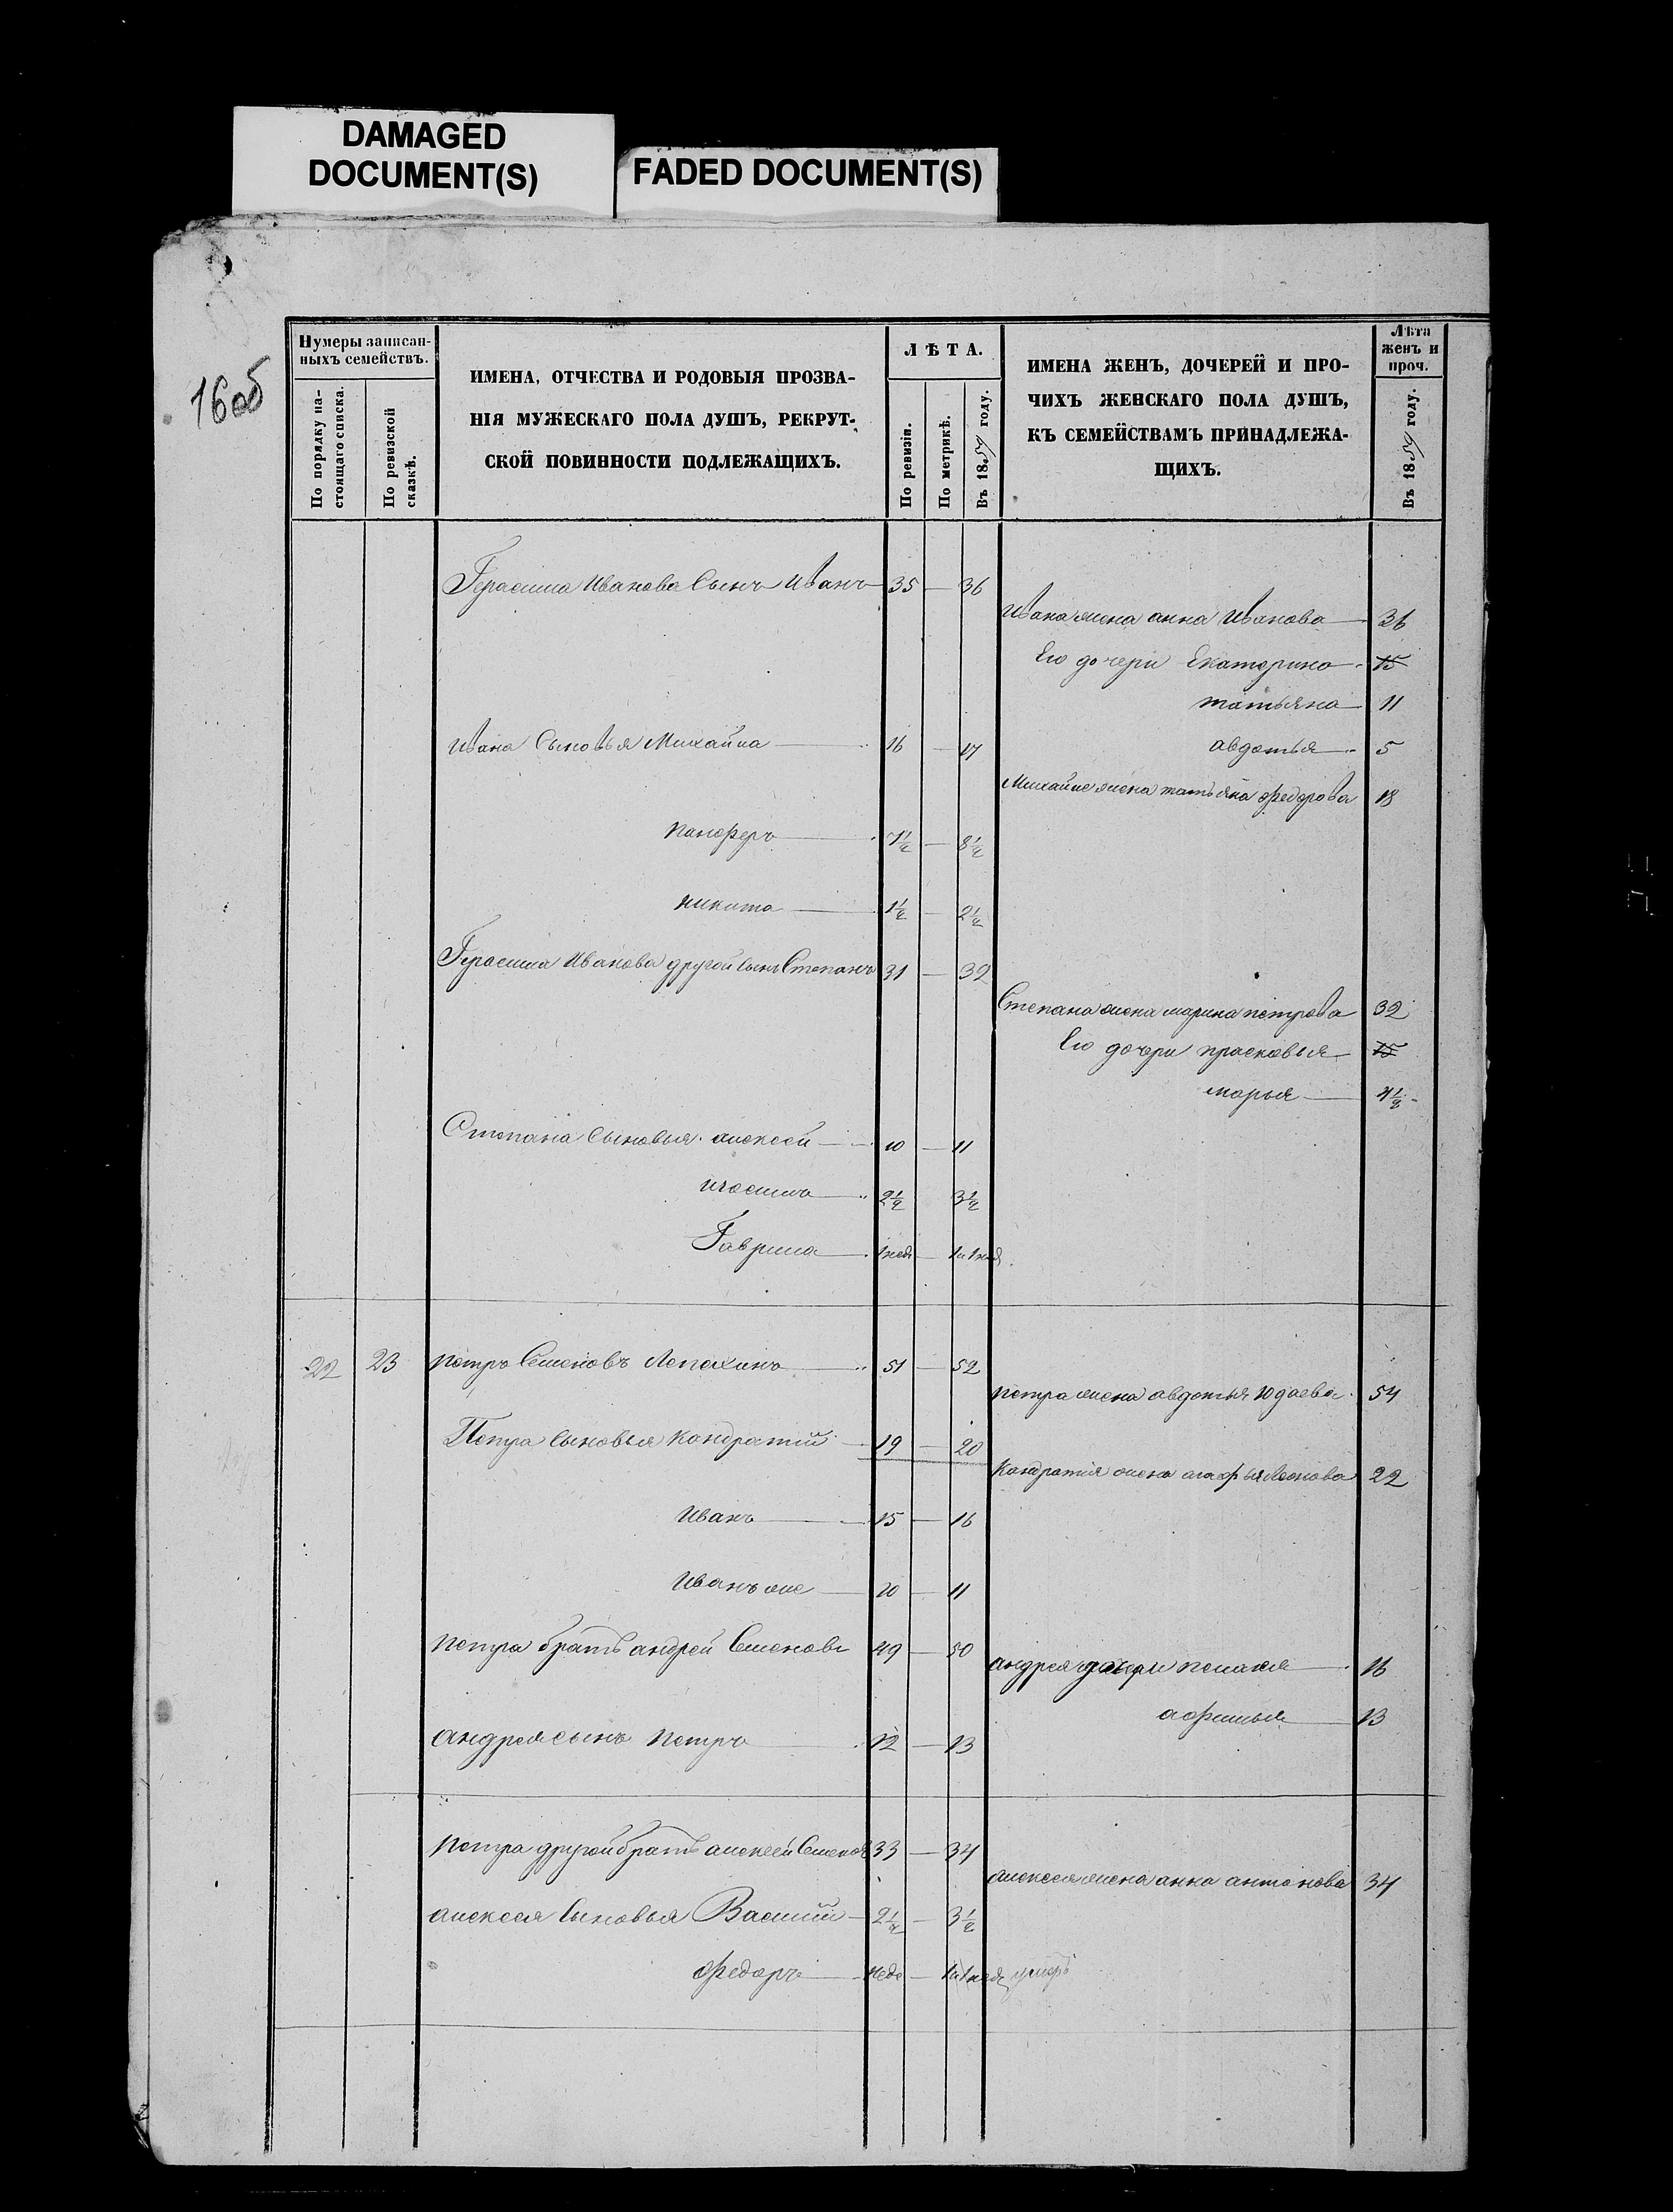 DAMAGED
DOCUMENT(S)
FADED DOCUMENT(S)
16об
Нумеры записан-
ныхъ семействъ.
По порядку на-
стоящаго списка.
По ревизской
сказкѣ.
ИМЕНА, ОТЧЕСТВА И РОДОВЫЯ ПРОЗВА-
НІЯ МУЖЕСКАГО ПОЛА ДУШЪ, РЕКРУТ-
СКОЙ ПОВИННОСТИ ПОДЛЕЖАЩИХЪ.
ЛѢТА.
По ревизіи.
По метрикѣ.
Въ 1859 году.
ИМЕНА ЖЕНЪ, ДОЧЕРЕЙ И ПРО-
ЧИХЪ ЖЕНСКАГО ПОЛА ДУШЪ,
КЪ СЕМЕЙСТВАМЪ ПРИНАДЛЕЖА-
ЩИХЪ.
Лѣта
женъ и
проч.
Въ 1859 году.
Герасима Иванова Сынъ Иванъ 35 — 36
Ивана жена анна Иванова 36
Его дочери Екатерина 15
татьяна 11
Ивана Сыновья Михайла 16 — 17
авдотья 5
Михайлы жена татьяна федорова 18
панферъ 7½ — 8½
никита 1½ — 2½
Герасима Иванова другой сынъ Степанъ 31 — 32
Степана жена марина петрова 32
Его дочери прасковья 15
марья 4½
Степана Сыновья алексей 10 — 11
2½ 3½
Гаврила 1нед — 1и1нед
22 23 петръ Семеновъ Лепехинъ 51 — 52
петра жена авдотья Юдаева 54
Петра Сыновья Кондратій 19 — 20
Кондратія жена агафья Леонова 22
Иванъ 15 — 16
Иванъ же 10 — 11
петра братъ андрей Семеновъ 49 — 50
андрея дочери пелагея 16
афимья 13
андрея сынъ петръ 12 — 13
петра другой братъ алексей Семенов 33 — 34
алексея жена анна антонова 34
алексея Сыновья Василий 2½ — 3½
федоръ неде — 1и1неде умеръ